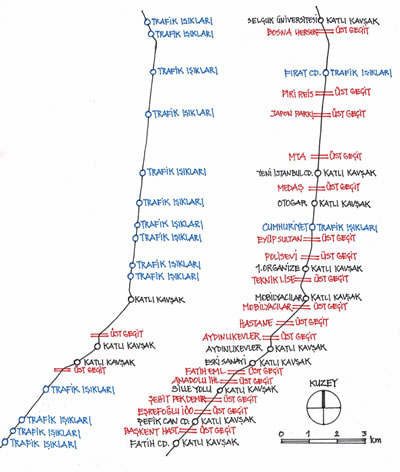 TRAFİK IŞIKLARI
TRAFİK IŞIKLARI
TRAFİK IŞIKLARI
TRAFİK IŞIKLARI
TRAFİK IŞIKLARI
TRAFİK IŞIKLARI
TRAFİK IŞIKLARI
TRAFİK IŞIKLARI
TRAFİK IŞIKLARI
TRAFİK IŞIKLARI
KATLI KAVŞAK
ÜST GEÇİT
KATLI KAVŞAK
KATLI KAVŞAK
ÜST GEÇİT
TRAFİK IŞIKLARI
TRAFİK IŞIKLARI
TRAFİK IŞIKLARI
TRAFİK IŞIKLARI
SELÇUK ÜNİVERSİTESİ KATLI KAVŞAK
BOSNA HERSEK ÜST GEÇİT
FIRAT CD. TRAFİK IŞIKLARI
PİRİ REİS ÜST GEÇİT
JAPON PARKI ÜST GEÇİT
MTA ÜST GEÇİT
YENİ İSTANBUL CD. KATLI KAVŞAK
MEDAŞ ÜST GEÇİT
OTOGAR KATLI KAVŞAK
CUMHURİYET TRAFİK IŞIKLARI
EYÜP SULTAN ÜST GEÇİT
POLİSEVİ ÜST GEÇİT
1.ORGANİZE KATLI KAVŞAK
TEKNİK LİSE ÜST GEÇİT
MOBİLYACILAR KATLI KAVŞAK
MOBİLYACILAR ÜST GEÇİT
HASTANE ÜST GEÇİT
AYDINLIKEVLER ÜST GEÇİT
AYDINLIKEVLER KATLI KAVŞAK
ESKİ SANAYİ KATLI KAVŞAK
FATİH EML. ÜST GEÇİT
ANADOLU İHL. ÜST GEÇİT
SİLLE YOLU KATLI KAVŞAK
ŞEHİT PEKDEMİR ÜST GEÇİT
EŞREFOĞLU İÖO ÜST GEÇİT
ŞEFİK CAN CD. KATLI KAVŞAK
BAŞKENT HAST. ÜST GEÇİT
FATİH CD. KATLI KAVŞAK
KUZEY
0 1 2 3
km